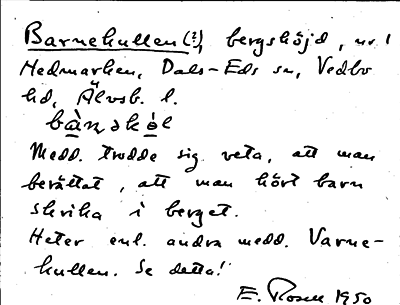 Barnekullen (?), bergshöjd, nr 1
Hedmarken, Dals-Eds sn, Vedbo
hd, Älvsb. l.
bà̱nəkö̱l
Medd. trodde sig veta, att man
berättat, att man hört barn
skrika i berget.
Heter enl. andra medd. Varne-
kullen. Se detta!
E. Rosen 1950